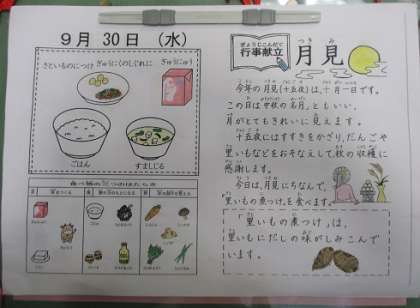 9月 30日 (水)
さといものにつけ
ぎゅうにくのしぐれに
ぎゅうにゅう
ごはん
すましじる
ぎょうじこんだて
行事献立
つきみ
月見
今年の月見(十五夜)は、十月一日です。
この日は中秋の名月、ともいい、
月がとてもきれいに見えます。
十五夜にはすすきをかざり、だんごや
里いもなどをおそなえして、秋の収穫に
感謝します。
今日は、月見にちなんで、
里いもの煮つけを食べます。
「里いもの煮つけ」は、
里いもにだしの味がしみこんで
います。